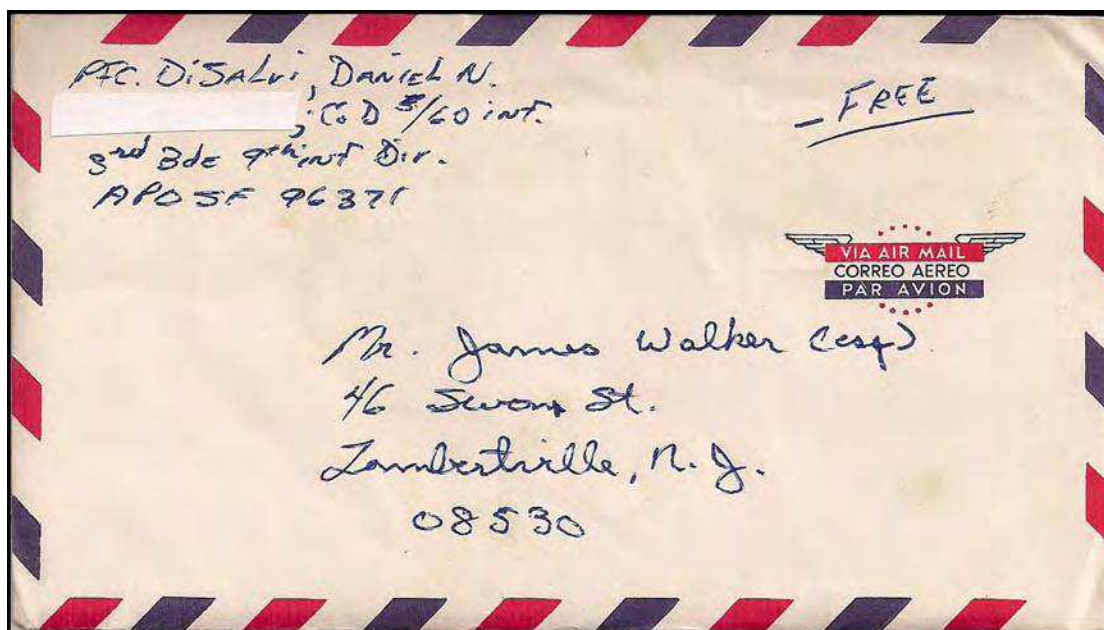 PFC. DiSALvi, DANiEL N.
Co D 5/60 inf.
3rd Bde 9th inf Div.
APO SF 96371
FREE
VIA AIR MAIL
CORREO AEREO
PAR AVION
Mr. James Walker (esq)
46 Swan St.
Lambertville, N. J.
08530